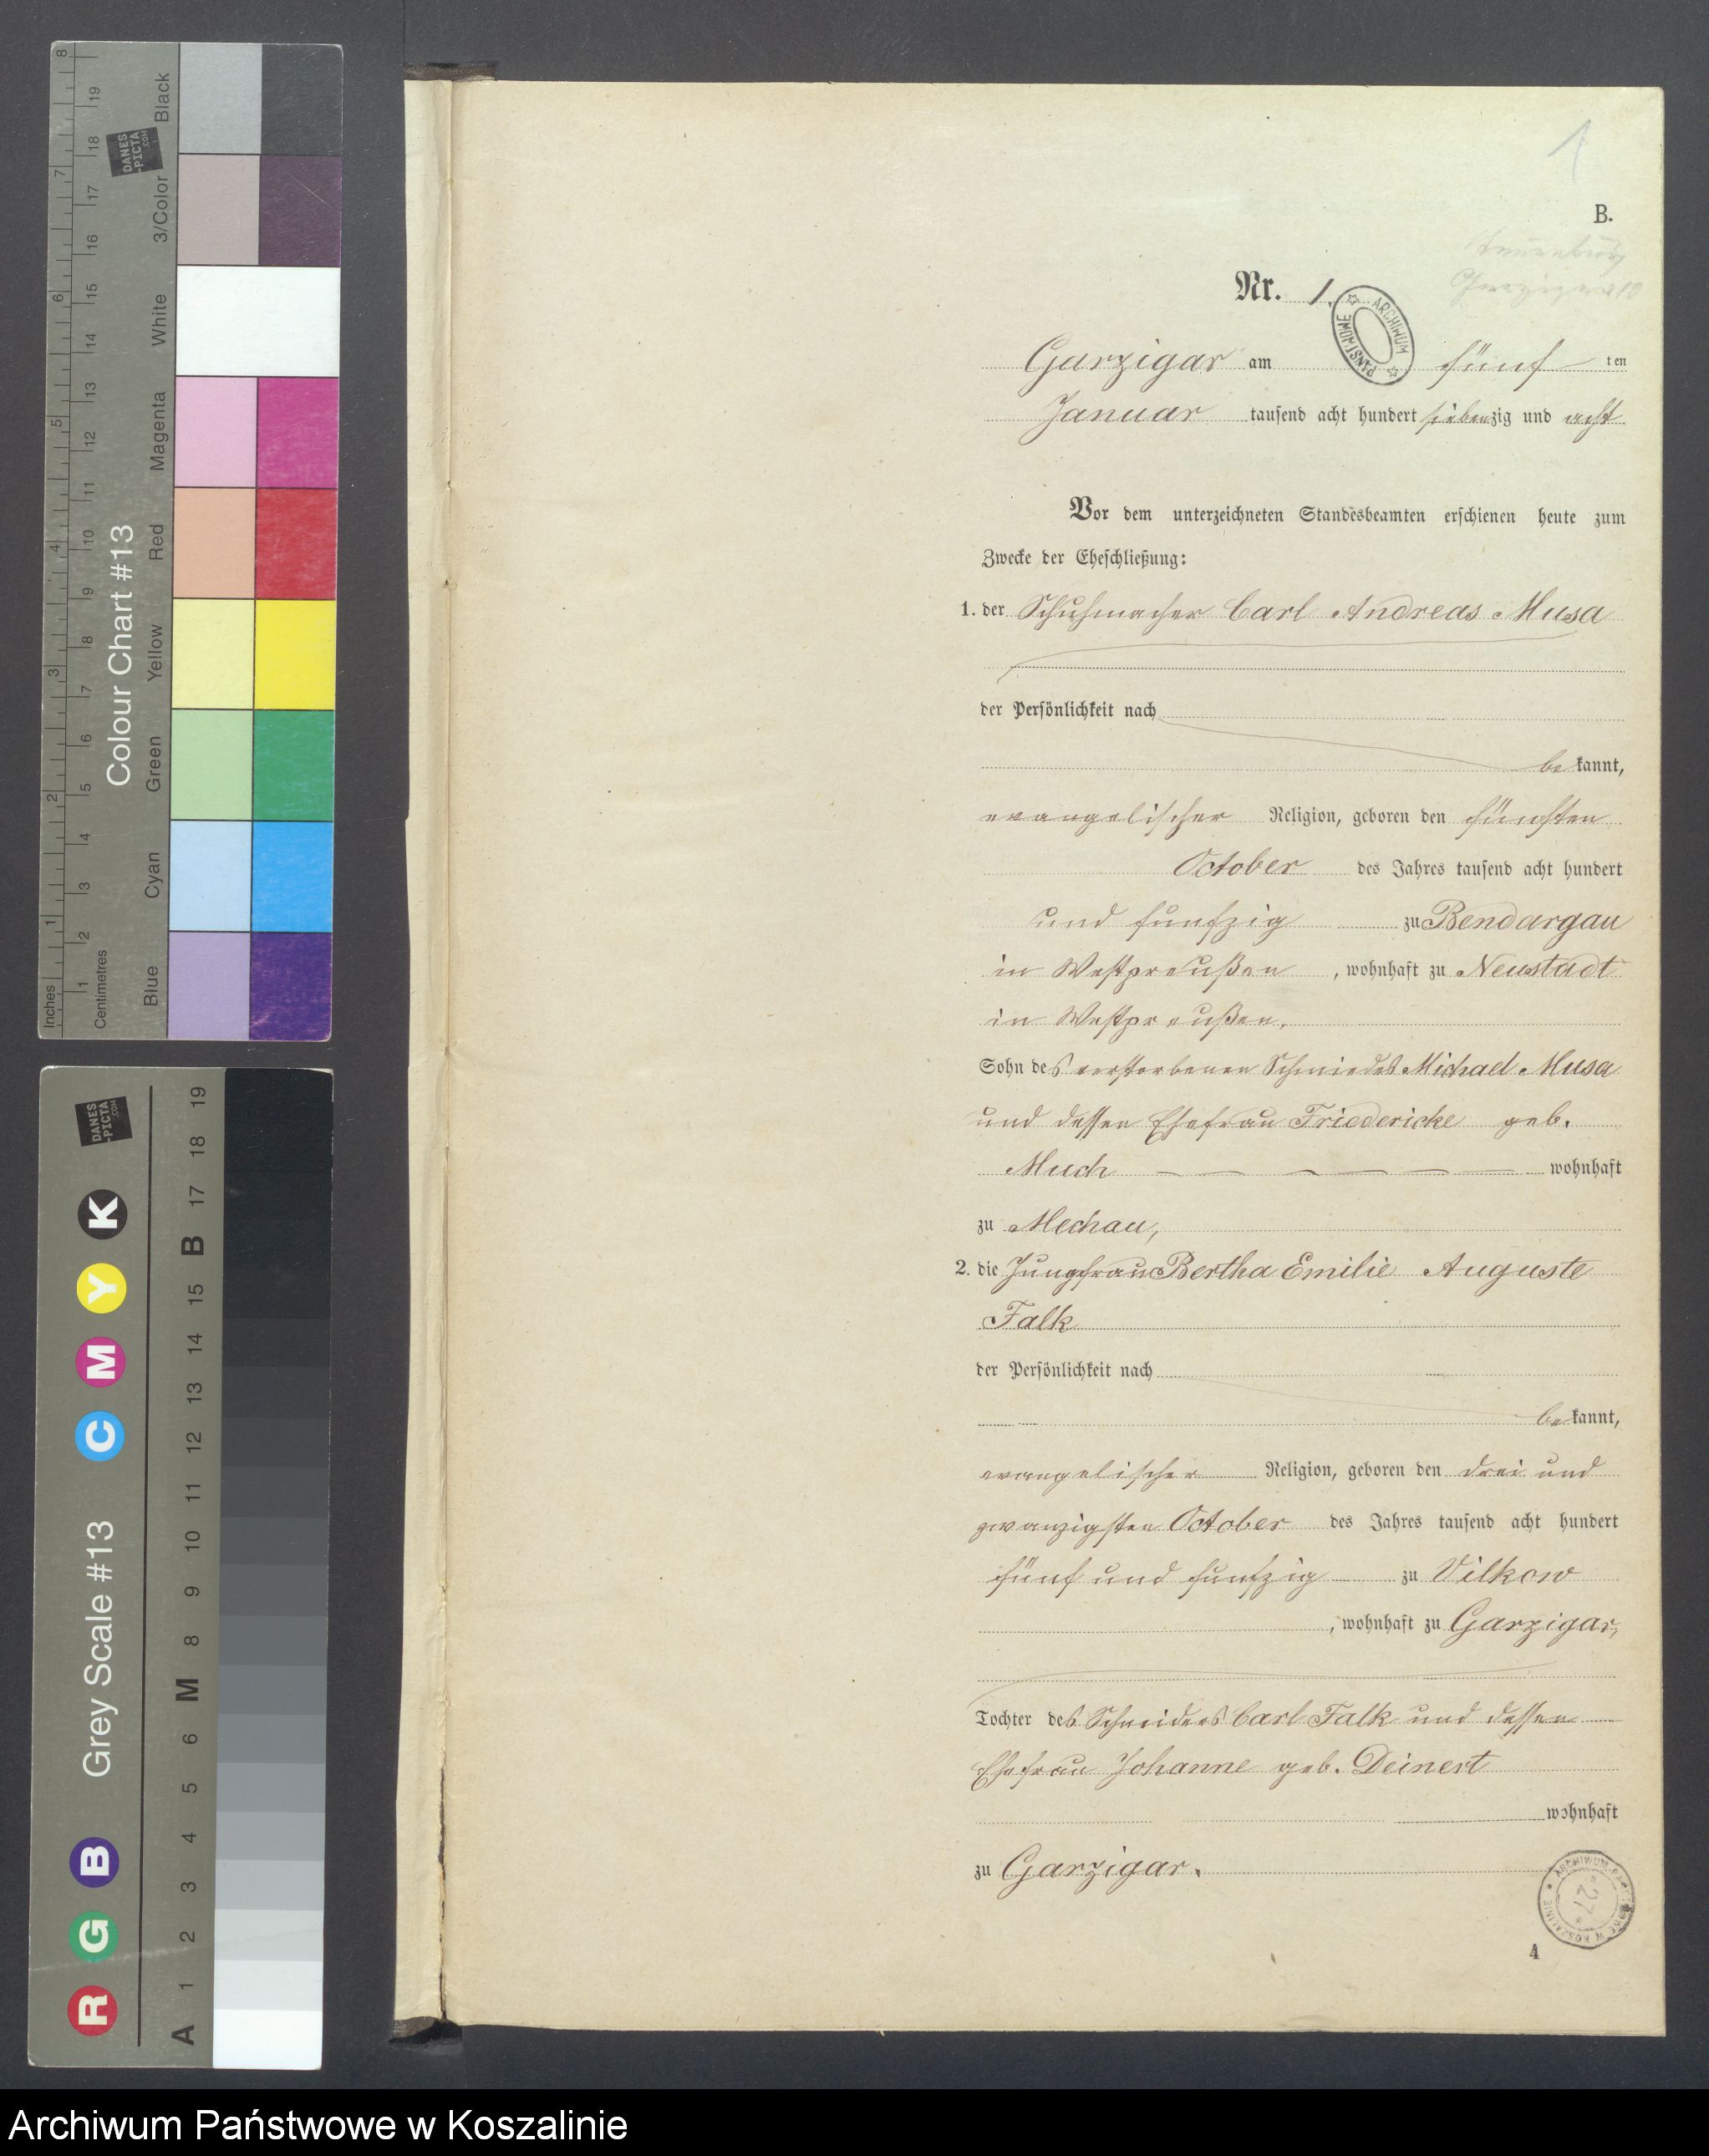 1
B.
Nr. 1.
ARCHIWUM PAŃSTWOWE
Garzigar am fünf ten
Januar tausend acht hundert siebenzig und acht
Vor dem unterzeichneten Standesbeamten erschienen heute zum
Zwecke der Eheschließung:
1. der Schuhmacher Carl Andreas Musa
der Persönlichkeit nach
be kannt,
evangelischer Religion, geboren den fünften
October des Jahres tausend acht hundert
und funfzig zu Bendargau
in Westpreußen, wohnhaft zu Neustadt
in Westpreußen.
Sohn des verstorbenen Schmiedes Michael Musa
und dessen Ehefrau Friedericke geb.
Much — — — — — — wohnhaft
zu Mechau,
2. die Jungfrau Bertha Emilie Auguste
Falk
der Persönlichkeit nach
be kannt,
evangelischer Religion, geboren den drei und
zwanzigsten October des Jahres tausend acht hundert
fünf und funfzig zu Vilkow
, wohnhaft zu Garzigar,
Tochter des Schneiders Carl Falk und dessen
Ehefrau Johanne geb. Deinert
wohnhaft
zu Garzigar.
ARCHIWUM PAŃSTWOWE W KOSZALINIE
* 27 *
4
Colour Chart #13
Inches 1 2 3 4 5 6 7 8
Centimetres 1 2 3 4 5 6 7 8 9 10 11 12 13 14 15 16 17 18 19
Blue Cyan Green Yellow Red Magenta White 3/Color Black
DANES
-PICTA
.COM
Grey Scale #13
R G B C M Y K
A 1 2 3 4 5 6 M 8 9 10 11 12 13 14 15 B 17 18 19
DANES
-PICTA
.COM
Archiwum Państwowe w Koszalinie